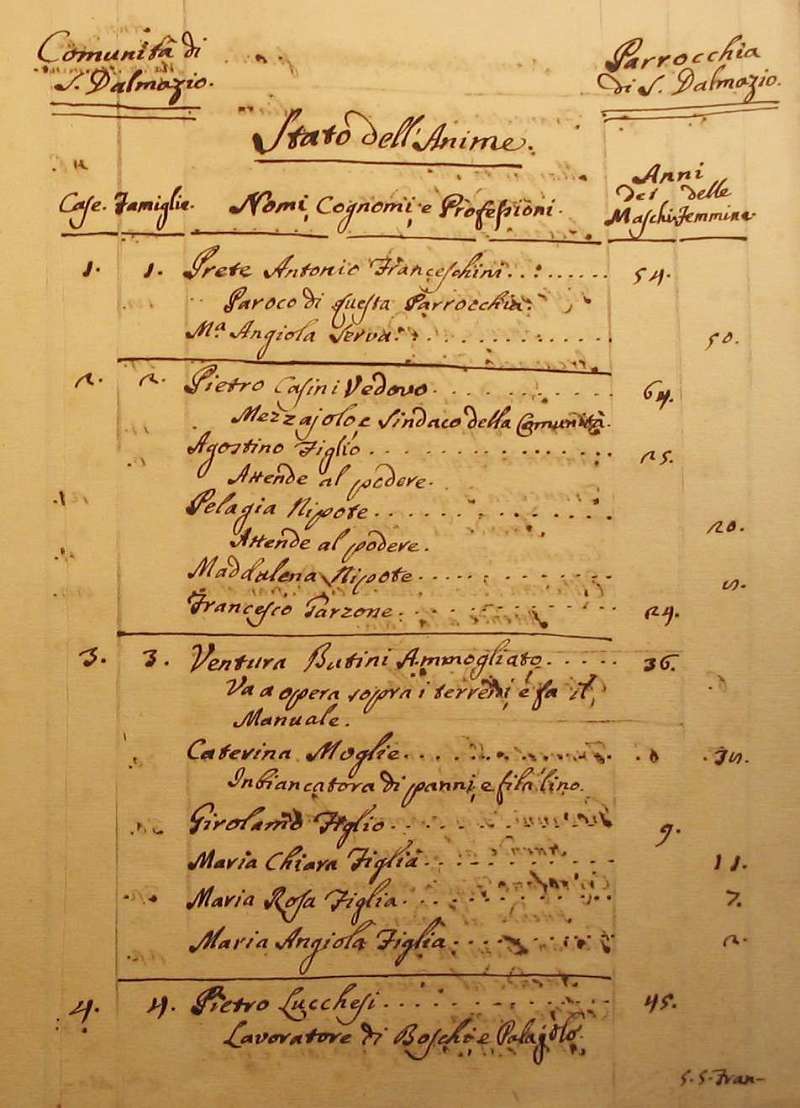 Comunità di
S. Dalmazio.
Parrocchia
di S. Dalmazio.
Stato dell'Anime.
Case. Famiglie. Nomi, Cognomi, e Professioni. Anni
dei delle
Maschi. Femmine.
1. 1. Prete Antonio Franceschini. 54.
Paroco di questa Parrocchia.
Mª Angiola Serva. 50.
2. 2. Pietro Casini Vedovo. 64.
Mezzajolo, e Sindaco della Comunità.
Agostino Figlio. 25.
Attende al podere.
Pelagia Nipote. 20.
Attende al podere.
Maddalena Nipote. 5.
Francesco Garzone. 24.
3. 3. Ventura Butini Ammogliato. 36.
Va a opera sopra i terreni, e fa il
Manuale.
Caterina Moglie. 35.
Inbiancatora di panni, e fila lino.
Girolamo Figlio. 9.
Maria Chiara Figlia. 11.
Maria Rosa Figlia. 7.
Maria Angiola Figlia. 2.
4. 4. Pietro Lucchesi. 45.
Lavoratore di Boschi e Palajolo.
S. S. Fran-